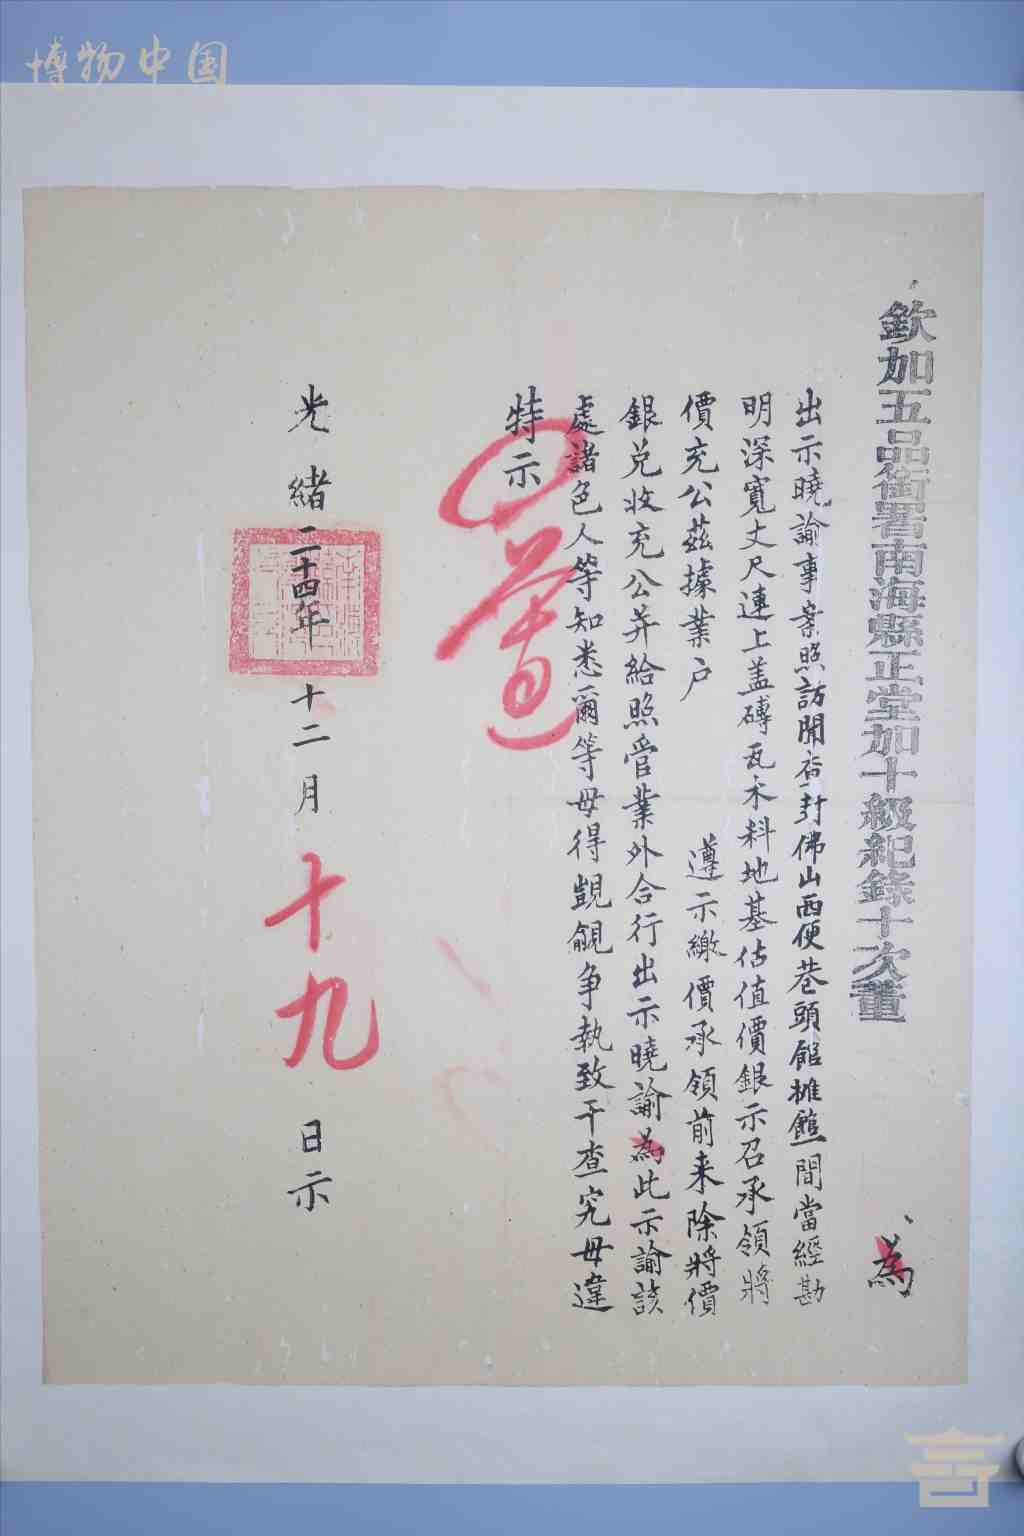 博物中国
欽加五品銜署南海縣正堂加十級紀錄十次董 為
出示曉諭事案照訪聞查封佛山西便巷頭館攤館一間當經勘
明深寬丈尺連上盖磚瓦木料地基估值價銀示召承領將
價充公茲據業户 遵示繳價承領前来除將價
銀兑收充公并給照管業外合行出示曉諭為此示諭該
處諸色人等知悉爾等毋得覬覦争執致干查究毋違
特示
遵
光緒二十四年十二月十九日示